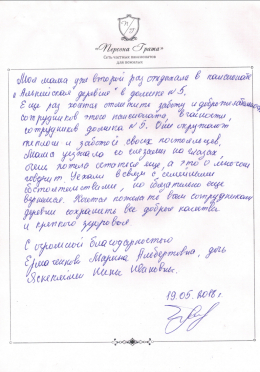 «Первая Грата»
Сеть частных пансионатов
для пожилых
Моя мама уже второй раз отдыхала в пансионате
"Альпийская деревня" в домике №5.
Еще раз хотим отметить заботу и доброжелательность
сотрудников этого пансионата, в частности,
сотрудников домика №5. Они окружают
теплом и заботой своих постояльцев.
Мама уезжала со слезами на глазах,
хотела остаться еще, а это о многом
говорит. Уехали в связи с семейными
обстоятельствами, но обязательно еще
вернемся. Хотим пожелать вам сотрудникам
деревни сохранить все добрые качества
и крепкого здоровья
С огромной благодарностью
Ермаченкова Марина Альбертовна, дочь
Нины Ивановны.
19.05.2018г.